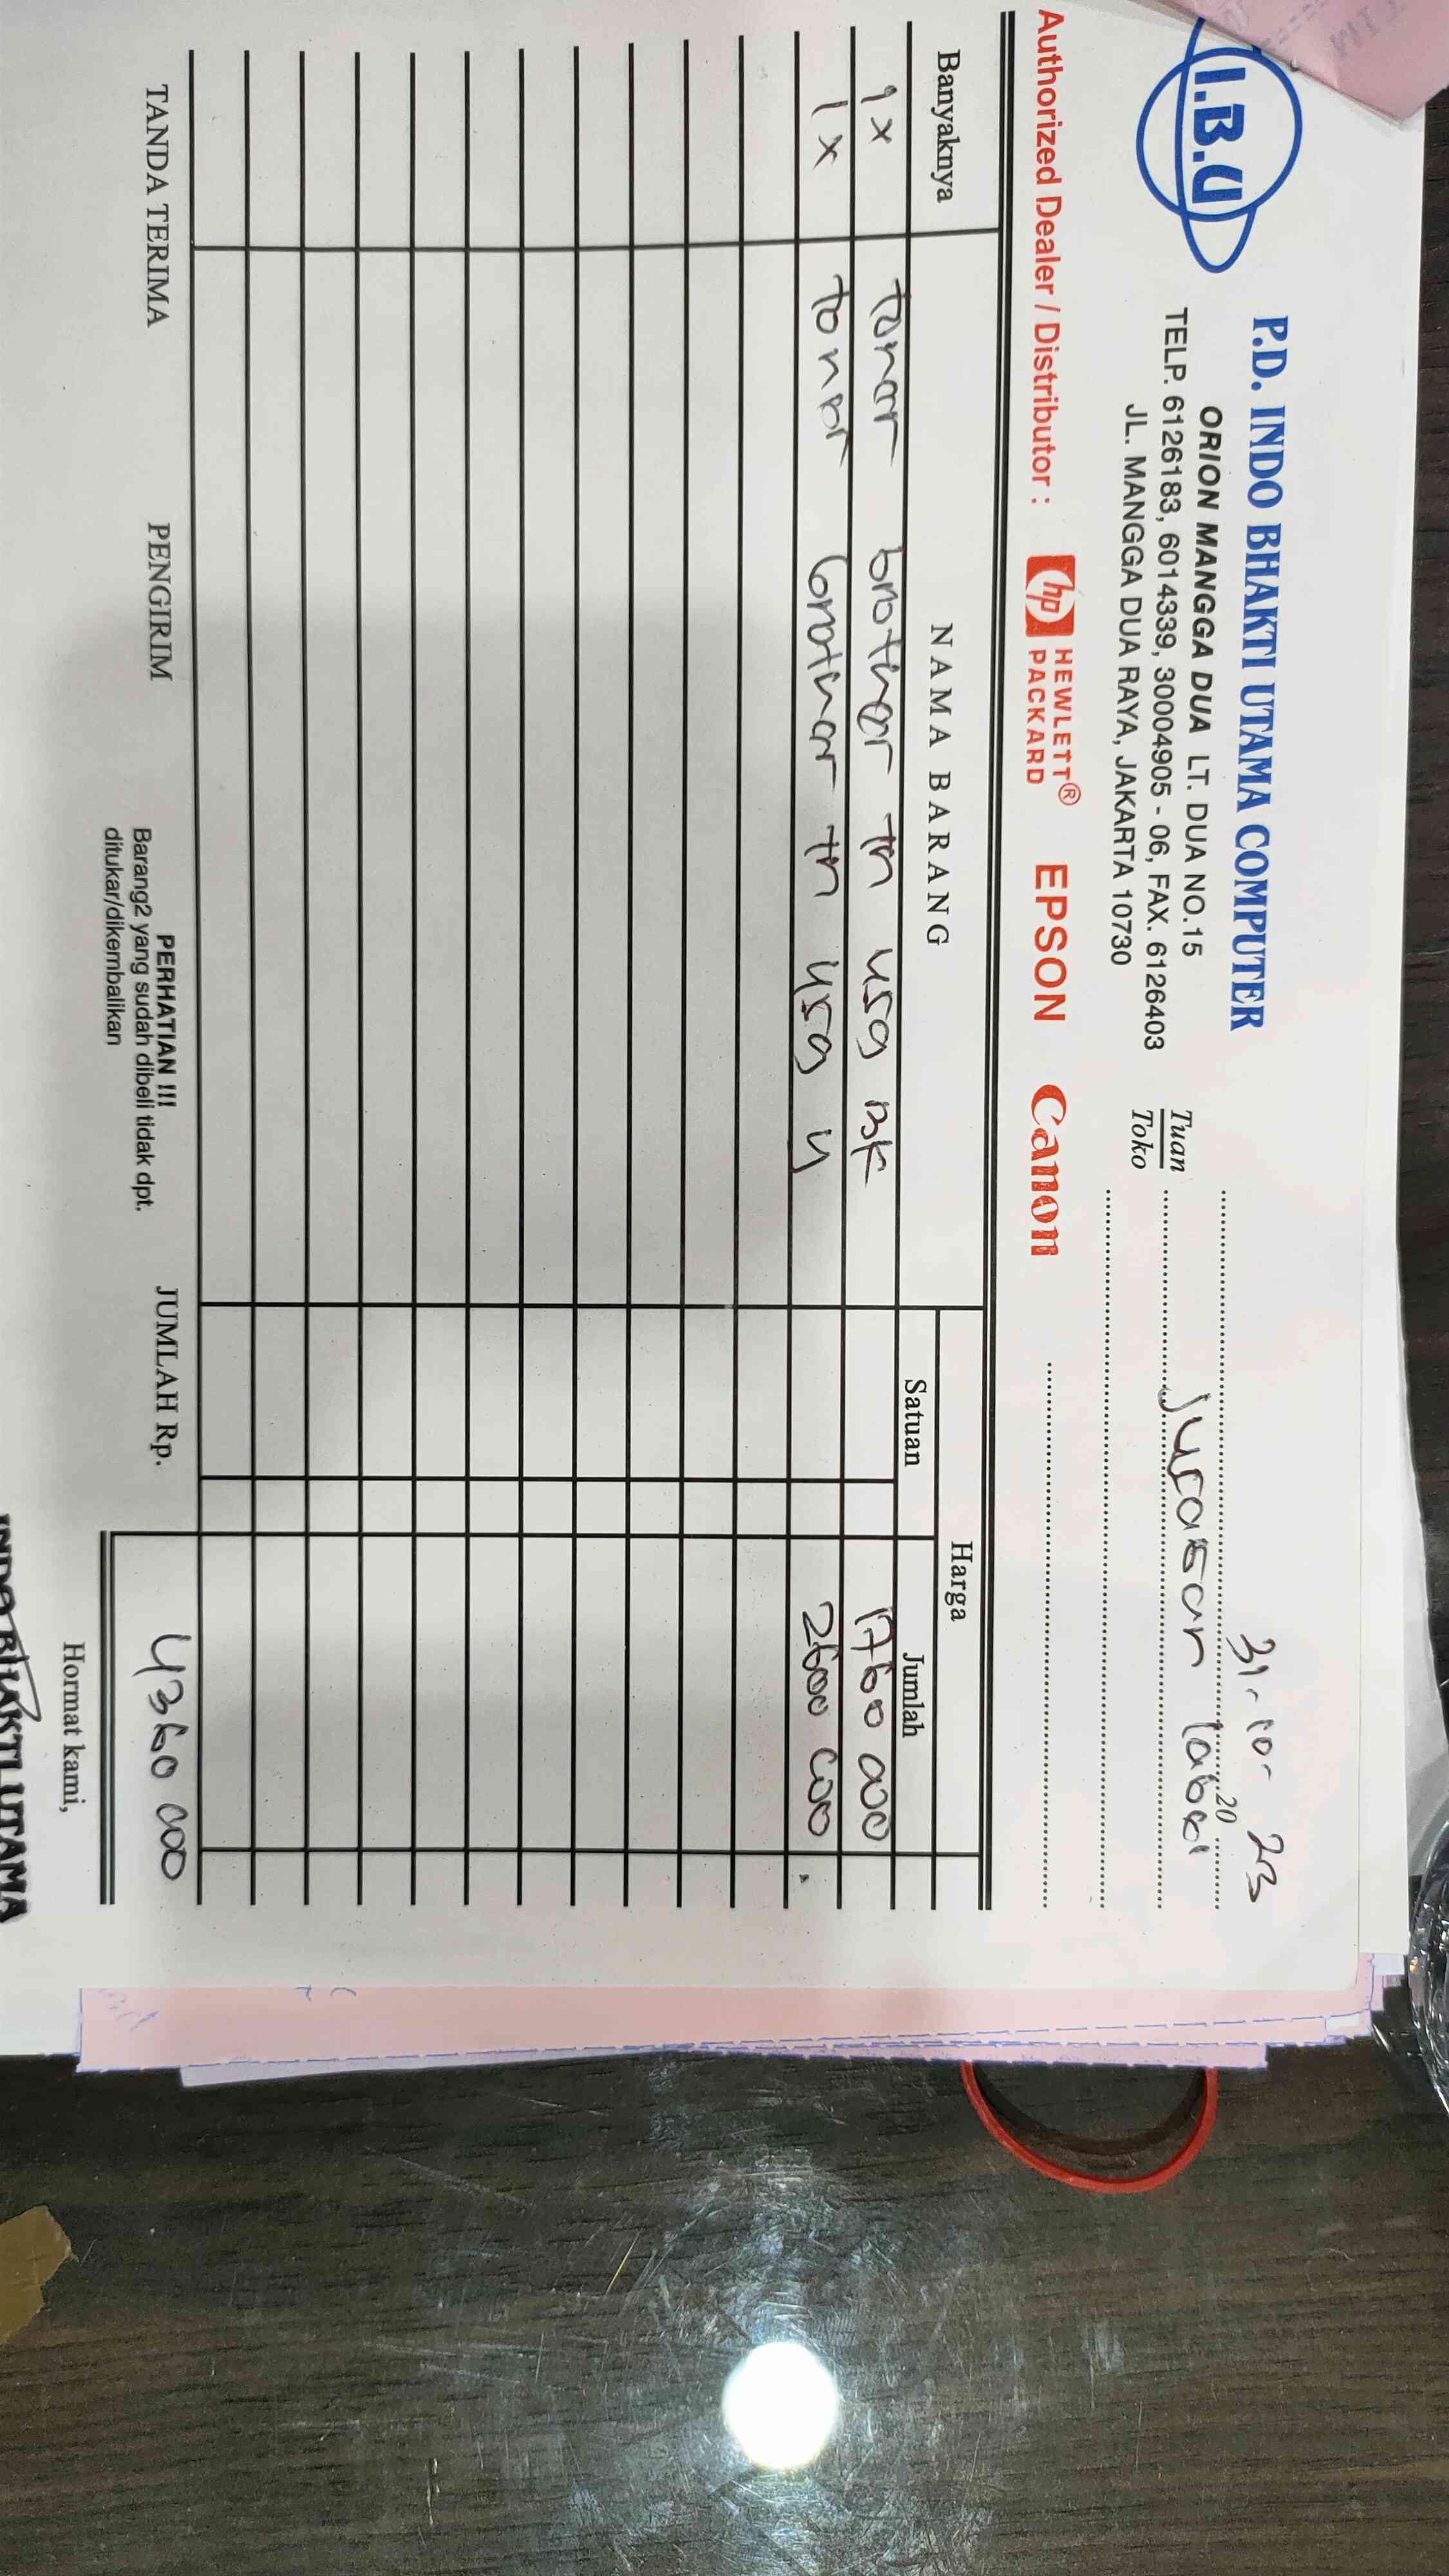 I.B.U
P.D. INDO BHAKTI UTAMA COMPUTER
ORION MANGGA DUA LT. DUA NO.15
TELP. 6126183, 6014339, 30004905 - 06, FAX. 6126403
JL. MANGGA DUA RAYA, JAKARTA 10730
31-10-23
20
Tuan
Toko
Jurasar label
Authorized Dealer / Distributor : hp HEWLETT® PACKARD EPSON Canon
Banyaknya NAMA BARANG Harga
Satuan Jumlah
1x toner brother tn 459 BK 1760 000
1x toner brother tn 459 y 2600 000
TANDA TERIMA PENGIRIM JUMLAH Rp. 4360 000
PERHATIAN !!!
Barang2 yang sudah dibeli tidak dpt.
ditukar/dikembalikan
Hormat kami,
INDO BHAKTI UTAMA